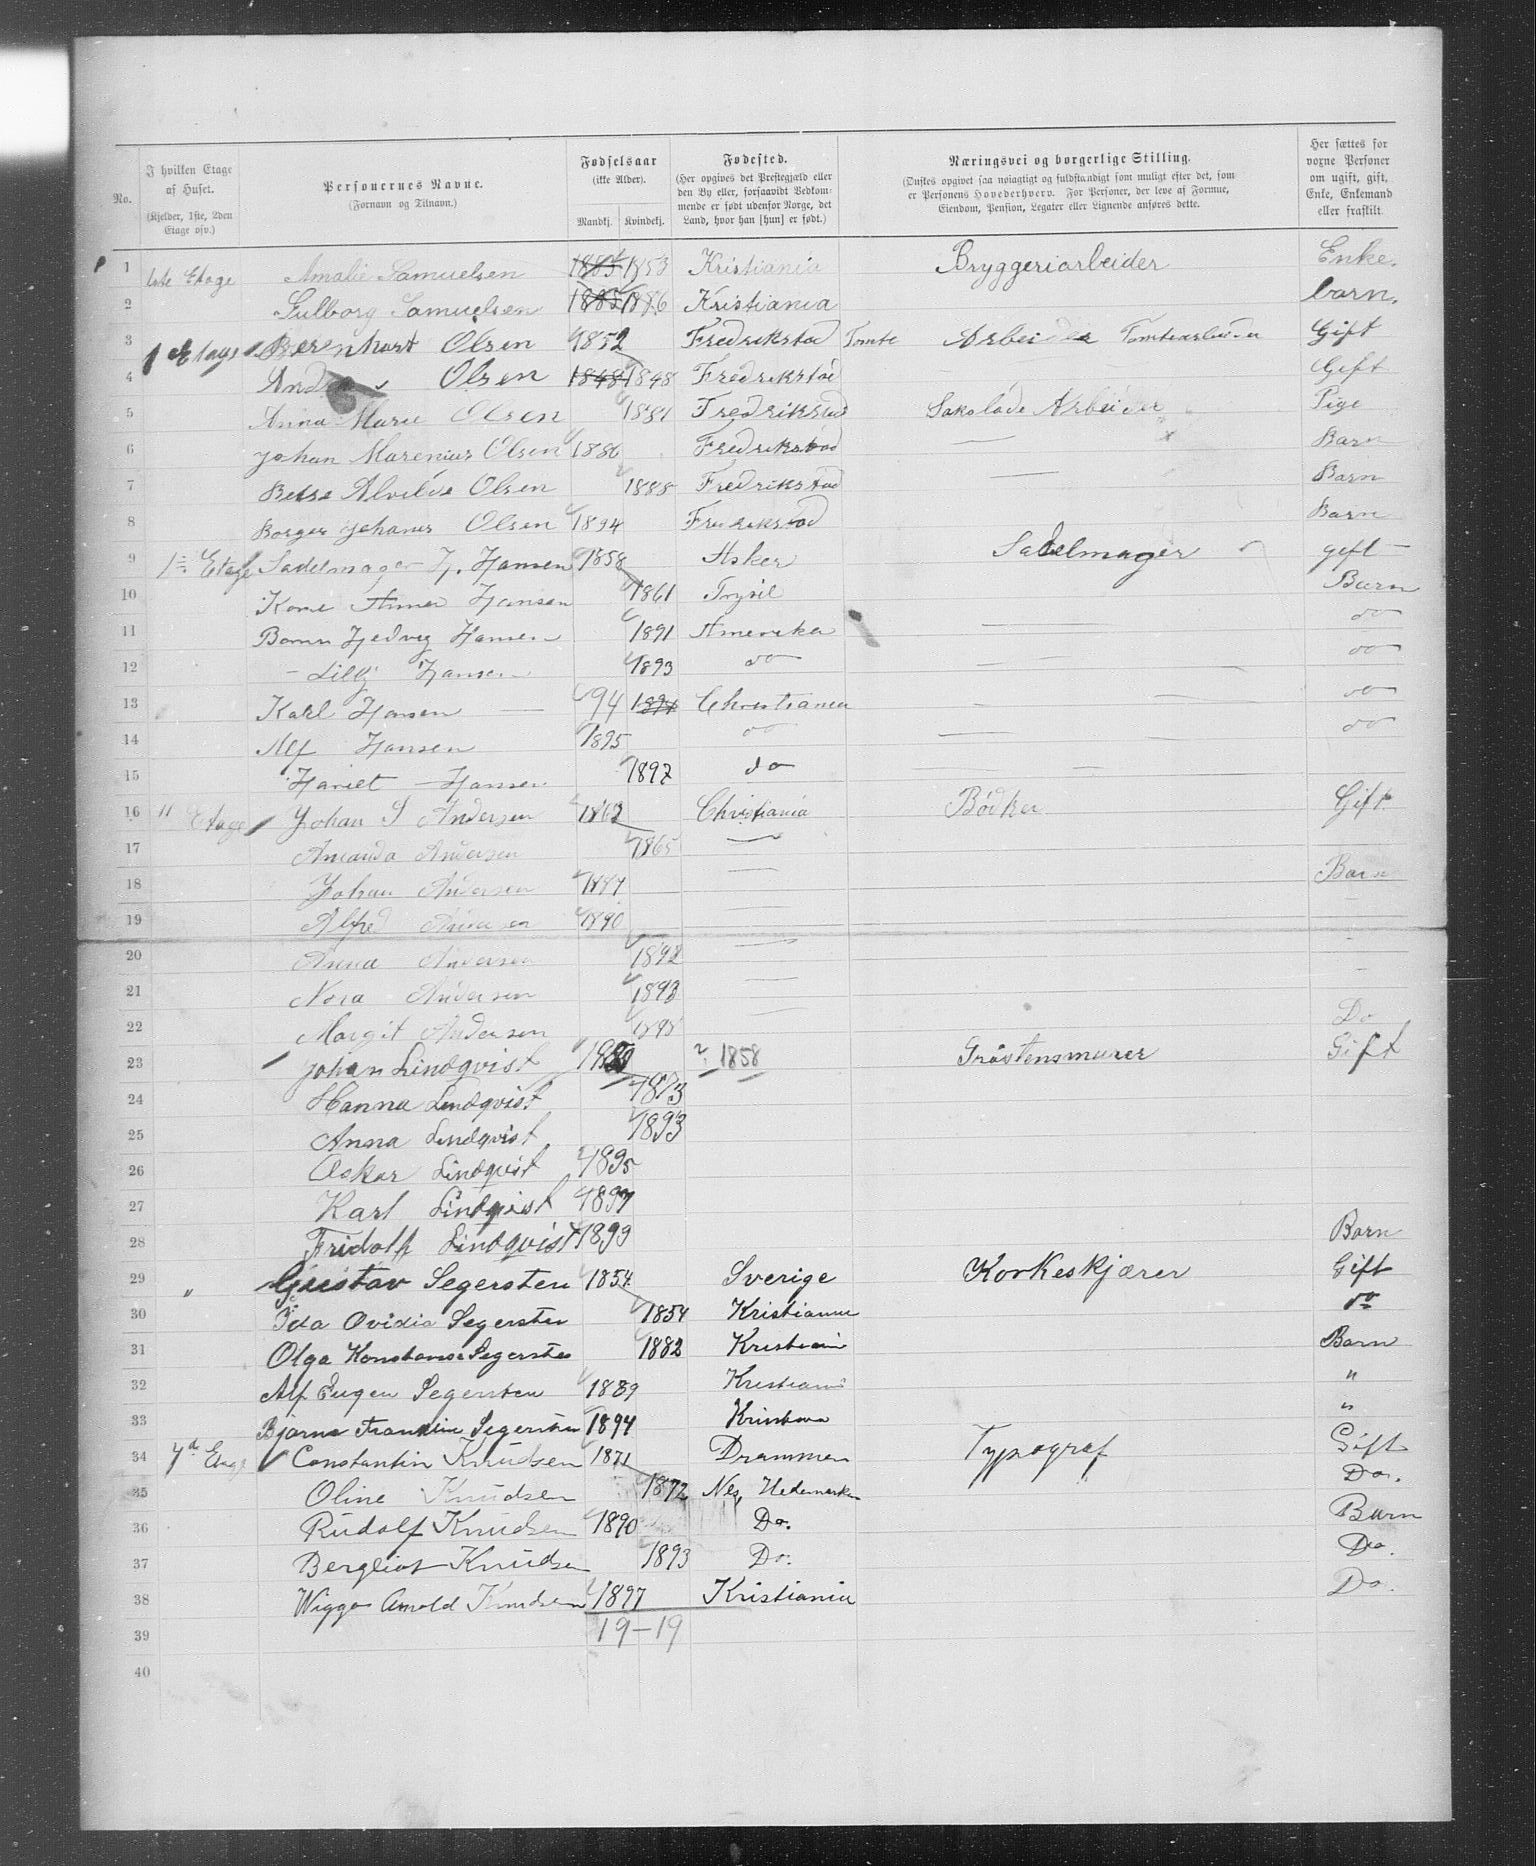 No. | I hvilken Etage af Huset. (Kjelder, 1ste, 2den Etage osv.) | Personernes Navne. (Fornavn og Tilnavn.) | Fødselsaar (ikke Alder). Mandkj. Kvindekj. | Fødested. (Her opgives det Prestegjæld eller den By eller, forsaavidt Vedkommende er født udenfor Norge, det Land, hvor han [hun] er født.) | Næringsvei og borgerlige Stilling. (Ønskes opgivet saa nøiagtigt og fuldstændigt som muligt efter det, som er Personens Hovederhverv. For Personer, der leve af Formue, Eiendom, Pension, Legater eller Lignende anføres dette. | Her sættes for voxne Personer om ugift, gift, Enke, Enkemand eller fraskilt.
1 1ste Etage Amalie Samuelsen 1853 Kristiania Bryggeriarbeider Enke.
2 Samuelsen 1885 1886 Kristiania barn.
3 1 Etage Berenhart Olsen 1852 Fredrikstad Tomte Arbeider Tomtearbeider Gift
4 Olsen 1848 1848 Fredrikstad Gift
5 Anna Marie Olsen 1881 Fredrikstad Arbeider Pige
6 Johan Marenius Olsen 1886 Fredrikstad — Barn
7 Betsa Alvilde Olsen 1888 Fredrikstad — Barn
8 Borger Johanes Olsen 1894 Fredrikstad Barn
9 1ste Etage Sadelmager H. Hansen 1858 Asker Sadelmager gift
10 Kone Hansen 1861 Trysil Barn
11 Barn Hedvig Hansen 1891 Amerika — do
12 – Lilly Hansen 1893 do — do
13 Karl Hansen — 94 1894 Christiania — do
14 Alf Hansen 1895 do — do
15 Hariet Hansen 1897 do —
16 " Etage Johan S Andersen 1862 Christiania Bödker Gift
17 Amanda Andersen 1865 —
18 Johan Andersen 1887 — Barn
19 Alfred Andersen 1890 —
20 Anna Andersen 1892 —
21 Nora Andersen 1893 —
22 Margit Andersen 1895 Do
23 Johan Lindqvist ? 1858 Gråstensmurer Gift
24 Hanna Lindqvist 1873
25 Anna Lindqvist 1893
26 Oskar Lindqvist 1895
27 Karl Lindqvist 1897
28 Fridolf Lindqvist 1899 Barn
29 " Gustav Segersten 1854 Sverige Korkeskjærer Gift
30 Ida Ovidia Segersten 1854 Kristiania do
31 Olga Konstanse Segersten 1882 Kristiania Barn
32 Alf Eugen Segersten 1889 Kristiania "
33 Bjarne Franklin Segersten 1894 Kristiania "
34 Etage Constantin Knudsen 1871 Drammen Typograf Gift
35 Oline Knudsen 1872 Nes, Hedemarken Do.
36 Rudolf Knudsen 1890 Do. Barn
37 Bergliot Knudsen 1893 Do. Do.
38 Wiggo Arnold Knudsen 1897 Kristiania Do.
39 19–19
40